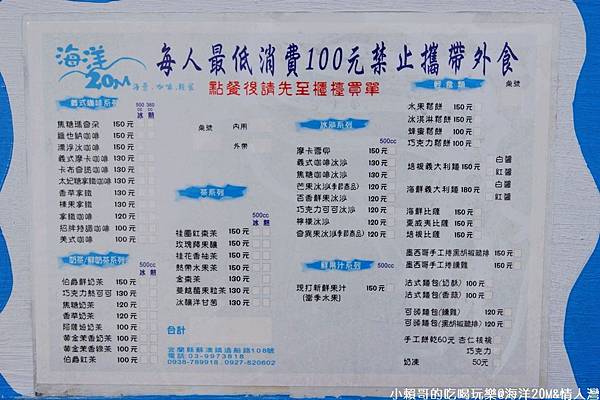 海洋
20M
海景.咖啡.輕食
每人最低消費100元禁止攜帶外食
點餐後請先至櫃檯買單
義式咖啡系列
500 360
cc cc
冰 熱
焦糖瑪奇朵 150元
維也納咖啡 150元
漂浮冰咖啡 150元
義式摩卡咖啡 130元
卡布奇諾咖啡 130元
太妃糖拿鐵咖啡 130元
香草拿鐵 130元
榛果拿鐵 130元
拿鐵咖啡 120元
招牌特調咖啡 100元
美式咖啡 100元
奶茶/鮮奶茶系列
500cc
冰 熱
伯爵鮮奶茶 150元
巧克力熱可可 130元
焦糖奶茶 120元
香草奶茶 120元
阿薩姆奶茶 100元
黃金茉香奶茶 100元
黃金茉香綠茶 100元
伯爵紅茶 100元
桌號
內用
外帶
茶系列
500cc
冰 熱
桂圓紅棗茶 150元
玫瑰蘋果釀 150元
桂花香柚茶 150元
熱帶水果茶 150元
金棗茶 130元
蔓越莓果粒茶 130元
冰釀洋甘菊 130元
合計
宜蘭縣蘇澳鎮造船路108號
電話:03-9973818
0938-789918、0927-820602
冰沙系列
500cc
摩卡雪抑 150元
義式咖啡冰沙 130元
焦糖咖啡冰沙 130元
芒果冰沙(季節產品) 120元
百香鮮果冰沙 120元
巧克力可可冰沙 120元
檸檬冰沙 120元
奇異果冰沙(季節產品) 120元
鮮果汁系列
500cc
現打新鮮果汁 150元
(當季水果)
輕食類
桌號
水果鬆餅 150元
冰淇淋鬆餅 150元
蜂蜜鬆餅 100元
巧克力鬆餅 100元
培根義大利麵 150元
白醬
紅醬
海鮮義大利麵 180元
白醬
紅醬
海鮮比薩 150元
夏威夷比薩 150元
培根比薩 150元
墨西哥手工捲黑胡椒脆排 150元
墨西哥手工捲燻雞 150元
法式麵包(奶酥) 100元
法式麵包(香蒜) 100元
可頌麵包(燻雞) 120元
可頌麵包(黑胡椒脆排) 120元
手工餅乾60元 杏仁核桃
巧克力
奶凍 50元
小賴哥的吃喝玩樂@海洋20M&情人灣